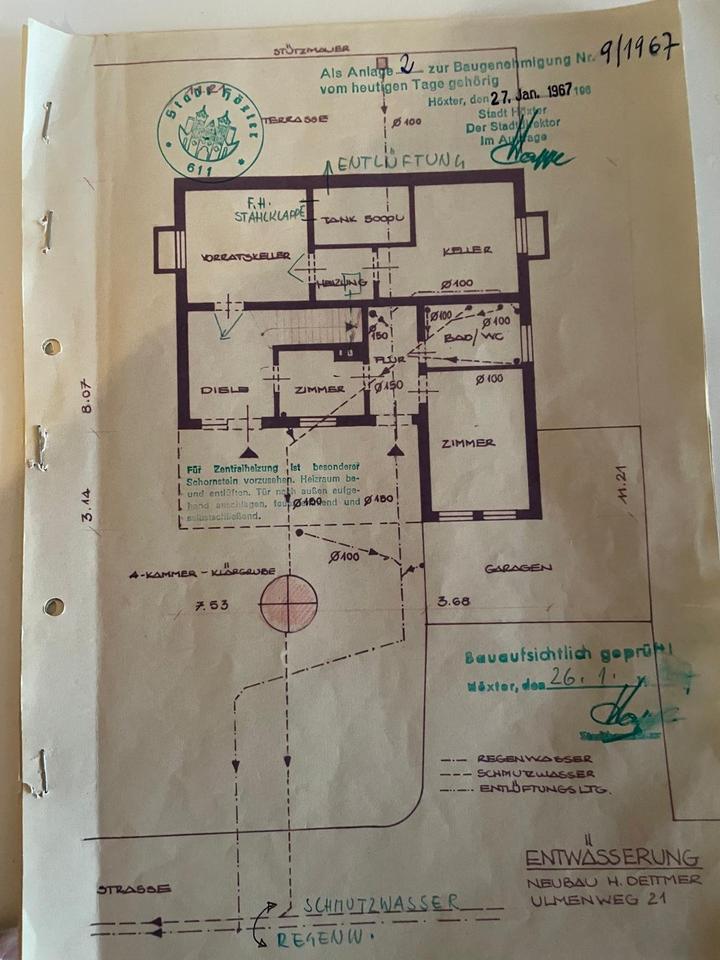 STÜTZMAUER
Als Anlage 2 zur Baugenehmigung Nr. 9/1967
vom heutigen Tage gehörig
Höxter, den 27. Jan. 1967 196
Stadt Höxter
Der Stadtdirektor
Im Auftrage
Stadt Höxter
611
TERRASSE
Ø 100
ENTLÜFTUNG
F.H.
STAHLKLAPPE
TANK 5000L
VORRATSKELLER
KELLER
HEIZUNG
Ø100
Ø100
Ø100
150
BAD/WC
FLUR
DIELE
ZIMMER
Ø150
Ø100
ZIMMER
8.07
3.14
11.21
Für Zentralheizung ist besonderer
Schornstein vorzusehen. Heizraum be-
und entlüften. Tür nach außen aufge-
hend anschlagen, feuerhemmend und
selbstschließend.
Ø150
Ø150
Ø100
4-KAMMER-KLÄRGRUBE
GARAGEN
7.53
3.68
Bauaufsichtlich geprüft!
Höxter, den 26. 1.
REGENWASSER
SCHMUTZWASSER
ENTLÜFTUNGSLTG.
ENTWÄSSERUNG
NEUBAU H. DETTMER
ULMENWEG 21
STRASSE
SCHMUTZWASSER
REGENW.